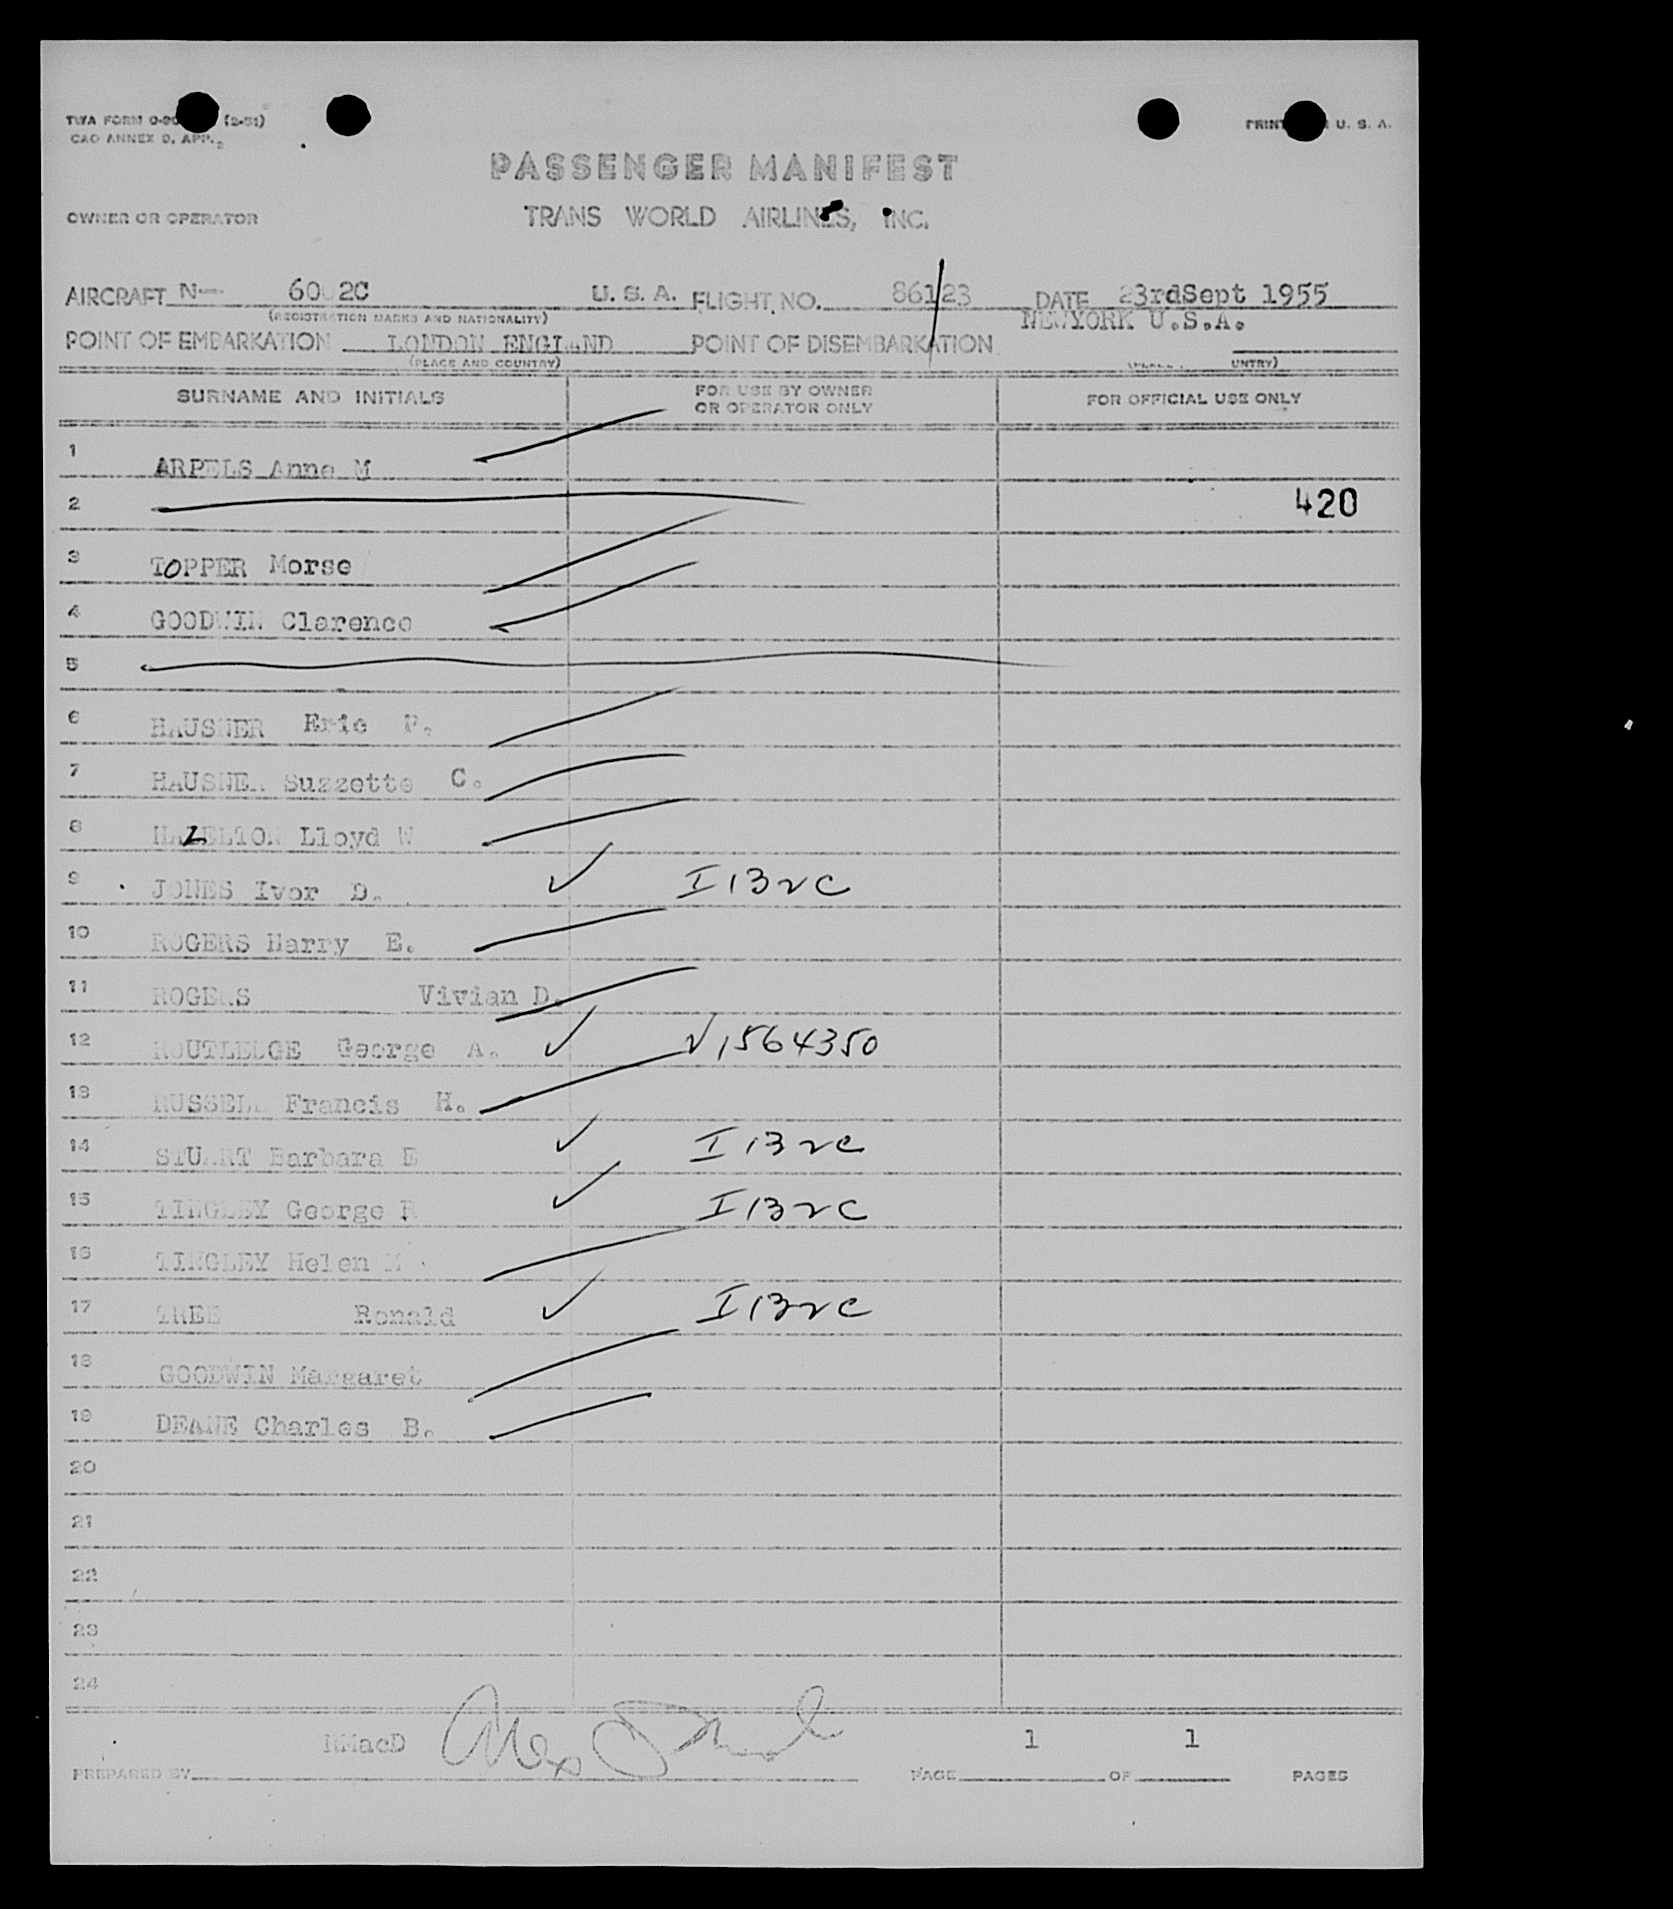 TWA FORM (2-51) PRINT U. S. A.
CAO ANNEX 9, APP.
PASSENGER MANIFEST
OWNER OR OPERATOR TRANS WORLD AIRLINES, INC.
AIRCRAFT N-- 6002C U. S. A. FLIGHT NO. 861/23 DATE 23rdSept 1955
(REGISTRATION MARKS AND NATIONALITY) NEWYORK U.S.A.
POINT OF EMBARKATION LONDON ENGLAND POINT OF DISEMBARKATION
(PLACE AND COUNTRY)
SURNAME AND INITIALS FOR USE BY OWNER OR OPERATOR ONLY FOR OFFICIAL USE ONLY
1 ARPELS Anne M
2 420
3 TOPPER Morse
4 GOODWIN Clarence
5
6 HAUSNER Eric
7 HAUSNER Suzzette C.
8 HAZELTON Lloyd W
9 JONES Ivor D. ✓ I 132C
10 ROGERS Harry E.
11 ROGERS Vivian D.
12 ROUTLEDGE George A. ✓ V1564350
13 RUSSELL Francis H.
14 STUART Barbara E ✓ I 132C
15 TINGLEY George R ✓ I 132C
16 TINGLEY Helen M
17 TREE Ronald ✓ I 132C
18 GOODWIN Margaret
19 DEANE Charles B.
20
21
22
23
24
MMacD
PREPARED BY PAGE 1 OF 1 PAGES